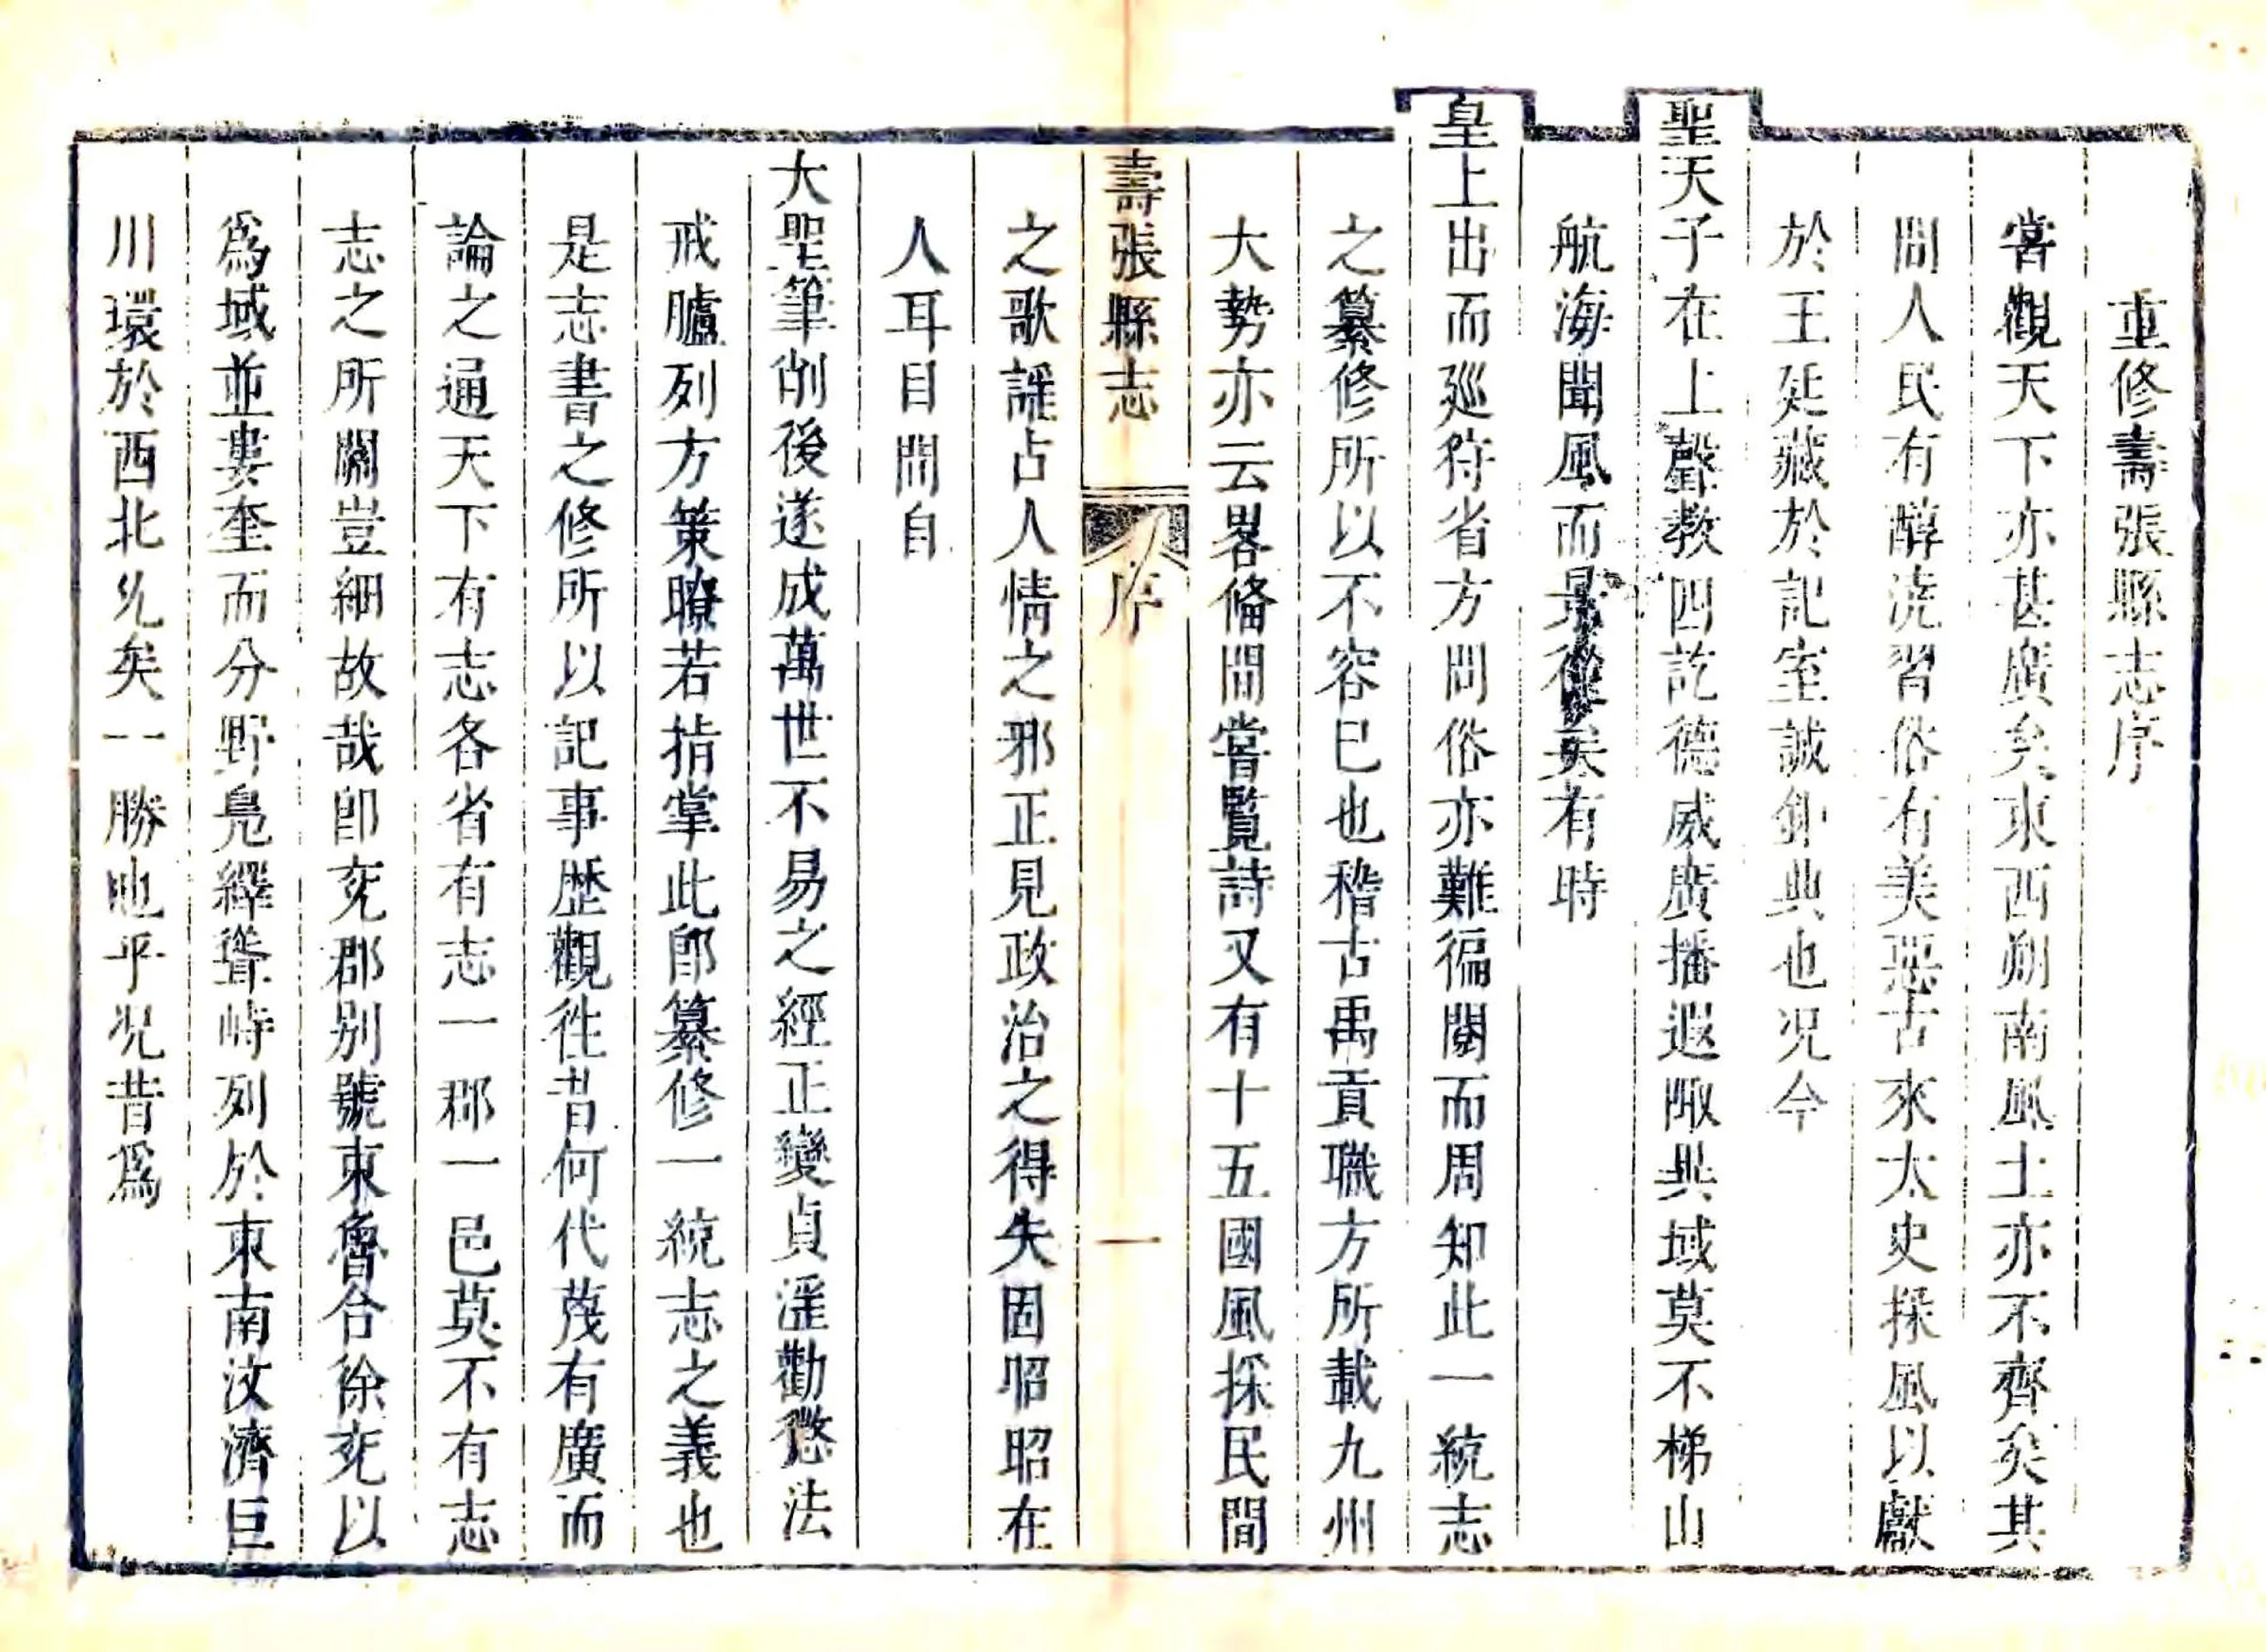 重修壽張縣志序
嘗觀天下亦甚廣矣東西朔南風土亦不齊矣其
間人民有醇澆習俗有美惡古來太史採風以獻
於王廷藏於記室誠鉅典也况今
聖天子在上聲教四訖德威廣播遐陬異域莫不梯山
航海聞風而景從矣有時
皇上出而廵狩省方問俗亦難徧閱而周知此一統志
之纂修所以不容已也稽古禹貢職方所載九州
大勢亦云畧備間嘗覽詩又有十五國風採民間
壽張縣志
序
一
之歌謠占人情之邪正見政治之得失固昭昭在
人耳目間自
大聖筆削後遂成萬世不易之經正變貞淫勸懲法
戒臚列方策瞭若指掌此卽纂修一統志之義也
是志書之修所以記事歴觀徃昔何代蔑有廣而
論之通天下有志各省有志一郡一邑莫不有志
志之所關豈細故哉卽兖郡别號東魯合徐兖以
爲域並婁奎而分野鳧繹聳峙列於東南汶濟巨
川環於西北允矣一勝地乎况昔爲